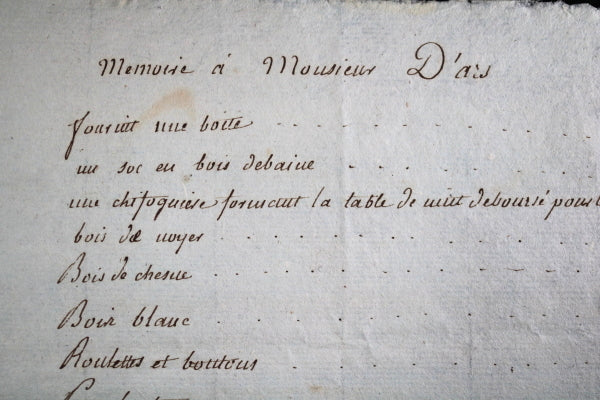 Memoire a Monsieur D'ars
fournit une boitte
un soc en bois debaine
une chifoguiere formant la table de nuit deboursé pour
bois de noyer
Bois de chesne
Bois blanc
Roulettes et boutons